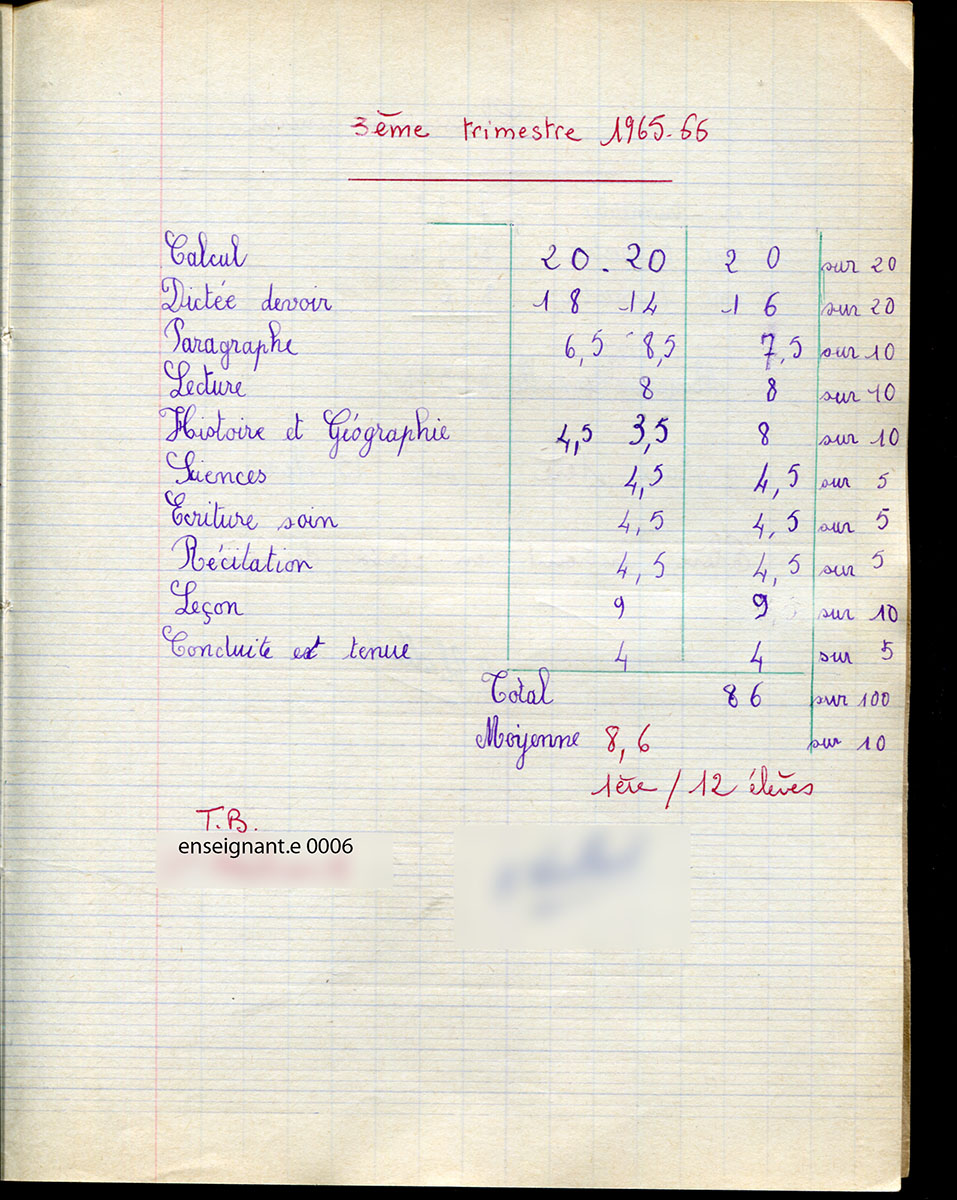 3ème trimestre 1965-66
Calcul 20.20 20 sur 20
Dictée devoir 18 14 16 sur 20
Paragraphe 6,5 8,5 7,5 sur 10
Lecture 8 8 sur 10
Histoire et Géographie 4,5 3,5 8 sur 10
Sciences 4,5 4,5 sur 5
Ecriture soin 4,5 4,5 sur 5
Récitation 4,5 4,5 sur 5
Leçon 9 9 sur 10
Conduite et tenue 4 4 sur 5
Total 86 sur 100
Moyenne 8,6 sur 10
1ère / 12 élèves
T.B.
enseignant.e 0006